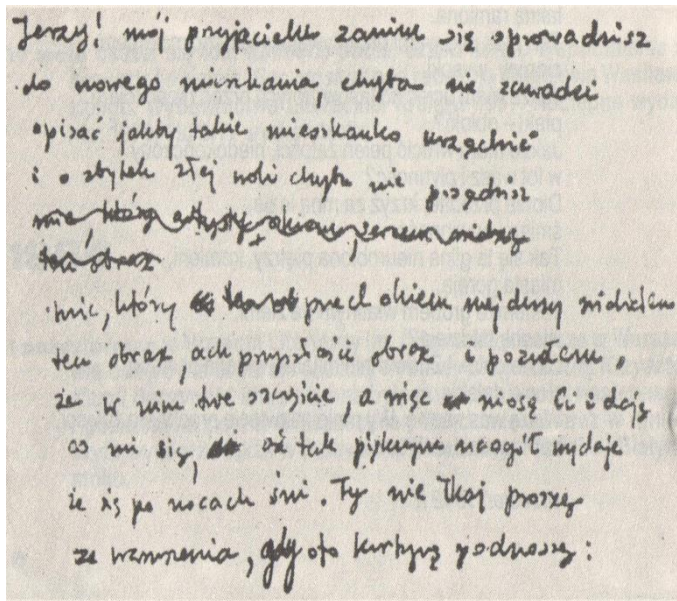 Jerzy! mój przyjacielu zanim się wprowadzisz
do nowego mieszkania chyba nie zawadzi
opisać jakby takie mieszkanko urządzić
i o zbytek złej woli chyba nie posądzisz
mnie, który
ten obraz
mnie, który przed okiem mej duszy widziałem
ten obraz, ach przyszłości obraz i pozwałem,
że w nim twe szczęście, a więc niosę Ci i daję
co mi się, aż tak pięknym naogół wydaje
że się po nocach śni. Ty nie łkaj proszę
ze wzruszenia, gdy oto kurtynę podnoszę: